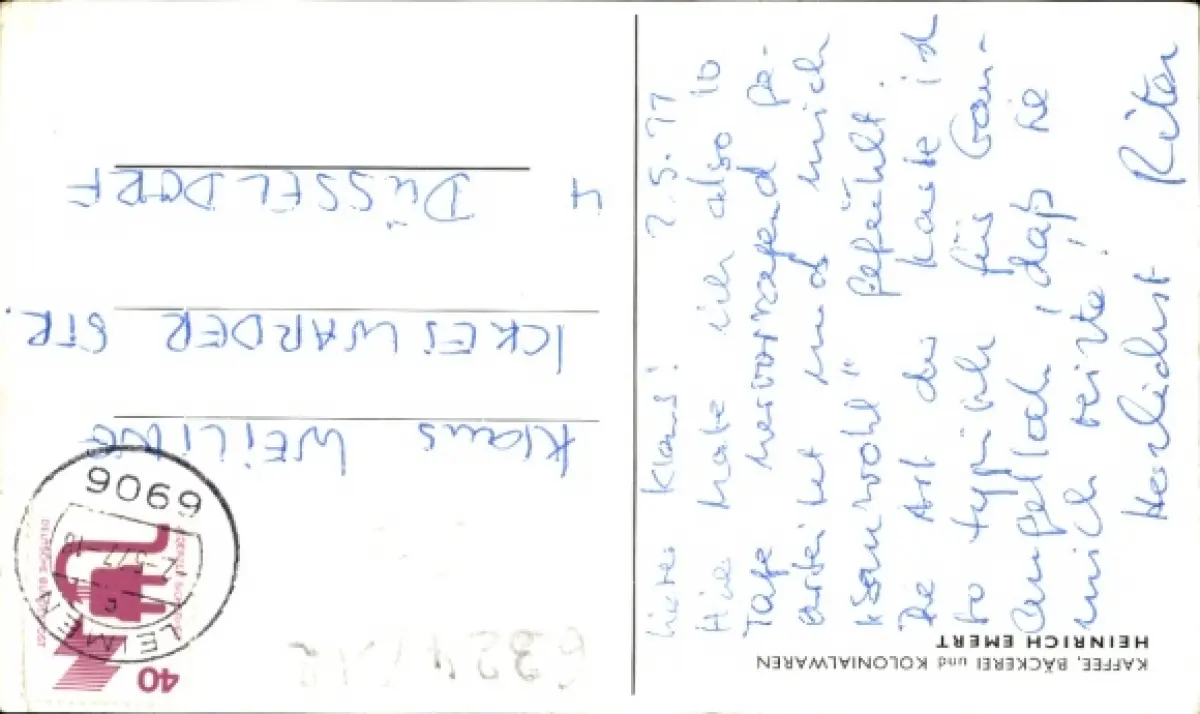 Lieber Klaus! 2.5.77
Hier habe ich also 10
Tage hervorragend ge-
arbeitet und mich
"sauwohl" gefühlt.
Die Art der Karte ist
so typisch für Gau-
angelloch, daß sie
mich reizte!
Herzlichst Rita
KAFFEE, BÄCKEREI und KOLONIALWAREN
HEINRICH EMERT
Klaus WEILING
ICKESWARDER STR.
4 DÜSSELDORF
6906
LEIMEN
DEUTSCHE BUNDESPOST
40